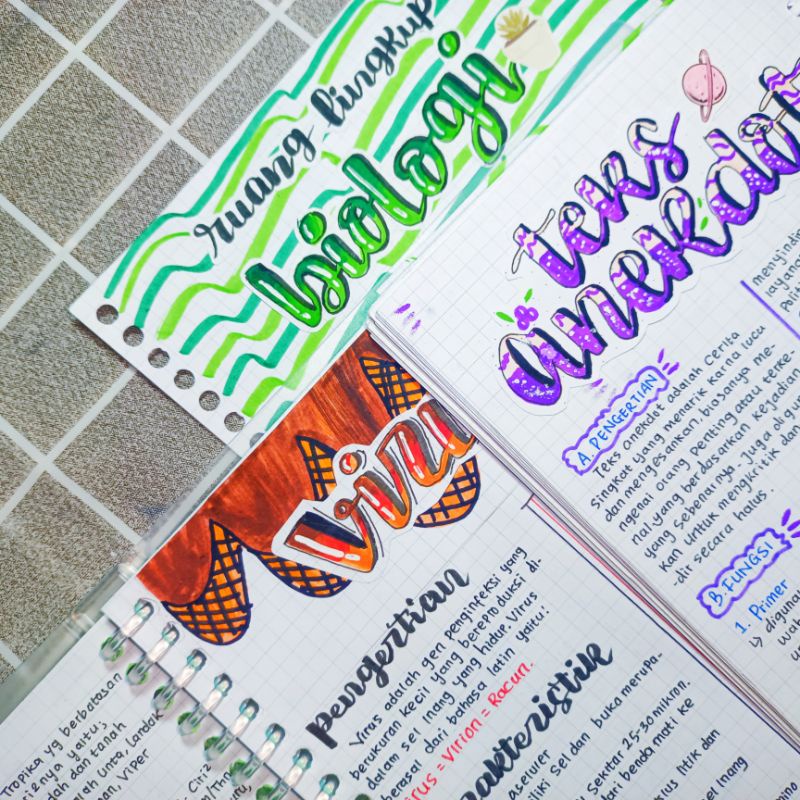 ruang lingkup
biologi
teks
anekdot
menyindir
layanan
A. PENGERTIAN
Teks anekdot adalah cerita
singkat yang menarik karna lucu
dan mengesankan, biasanya me-
ngenai orang penting atau terke-
nal, yang berdasarkan kejadian
yang sebenarnya. Juga digunakan
kan untuk mengkritik dan
-dir secara halus.
B. FUNGSI
1. Primer
↳ diguna
pengertian
Virus adalah gen penginfeksi yang
berukuran kecil yang bereproduksi di-
dalam sel inang yang hidup. Virus
berasal dari bahasa latin yaitu:
irus = Virion = Racun.
rakteristik
aseluler
iliki sel dan bukan merupa-
u sekitar 25-30 mikron.
dari benda mati ke
klus litik dan
sel inang
Tropika yg berbatasan
cirinya yaitu;
dah dan tanah
alah unta, Landak
nan, Viper
Ciri2